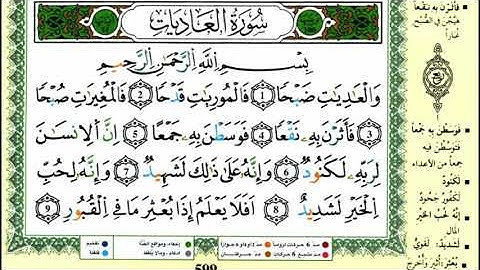 سُورَةُ العَادِيَاتِ
بِسْمِ اللَّهِ الرَّحْمَٰنِ الرَّحِيمِ
وَالْعَادِيَاتِ ضَبْحًا ١ فَالْمُورِيَاتِ قَدْحًا ٢ فَالْمُغِيرَاتِ صُبْحًا
٣ فَأَثَرْنَ بِهِ نَقْعًا ٤ فَوَسَطْنَ بِهِ جَمْعًا ٥ إِنَّ الْإِنْسَانَ
لِرَبِّهِ لَكَنُودٌ ٦ وَإِنَّهُ عَلَىٰ ذَٰلِكَ لَشَهِيدٌ ٧ وَإِنَّهُ لِحُبِّ
الْخَيْرِ لَشَدِيدٌ ٨ أَفَلَا يَعْلَمُ إِذَا بُعْثِرَ مَا فِي الْقُبُورِ ٩
فَأَثَرْنَ بِهِ نَقْعًا
هَيَّجْنَ فِي الصُّبْحِ
غُبَارًا
فَوَسَطْنَ بِهِ جَمْعًا
فَتَوَسَّطْنَ فِيهِ
جَمْعًا من الأعداء
لَكَنُودٌ
لَكَفُورٌ جَحُودٌ
إِنَّهُ لِحُبِّ الْخَيْرِ
المال
لَشَدِيدٌ: لَقَوِيٌّ
بُعْثِرَ: أُثِيرَ وَأُخْرِجَ
مد ٦ حركات لزوماً
إخفاء، ومواقع الغنّة
تفخيم
قلقلة
599